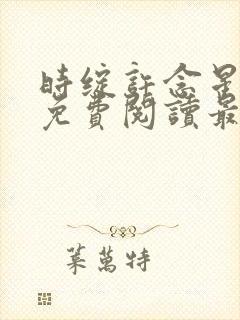 時綻許念星
免費閱讀最
葉萬特